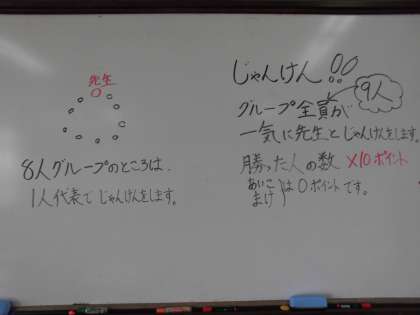 先生
8人グループのところは、
1人代表でじゃんけんをします。
じゃんけん!!
9人
グループ全員が
一気に先生とじゃんけんをします。
勝った人の数 ×10ポイント
あいこ
まけ
は0ポイントです。